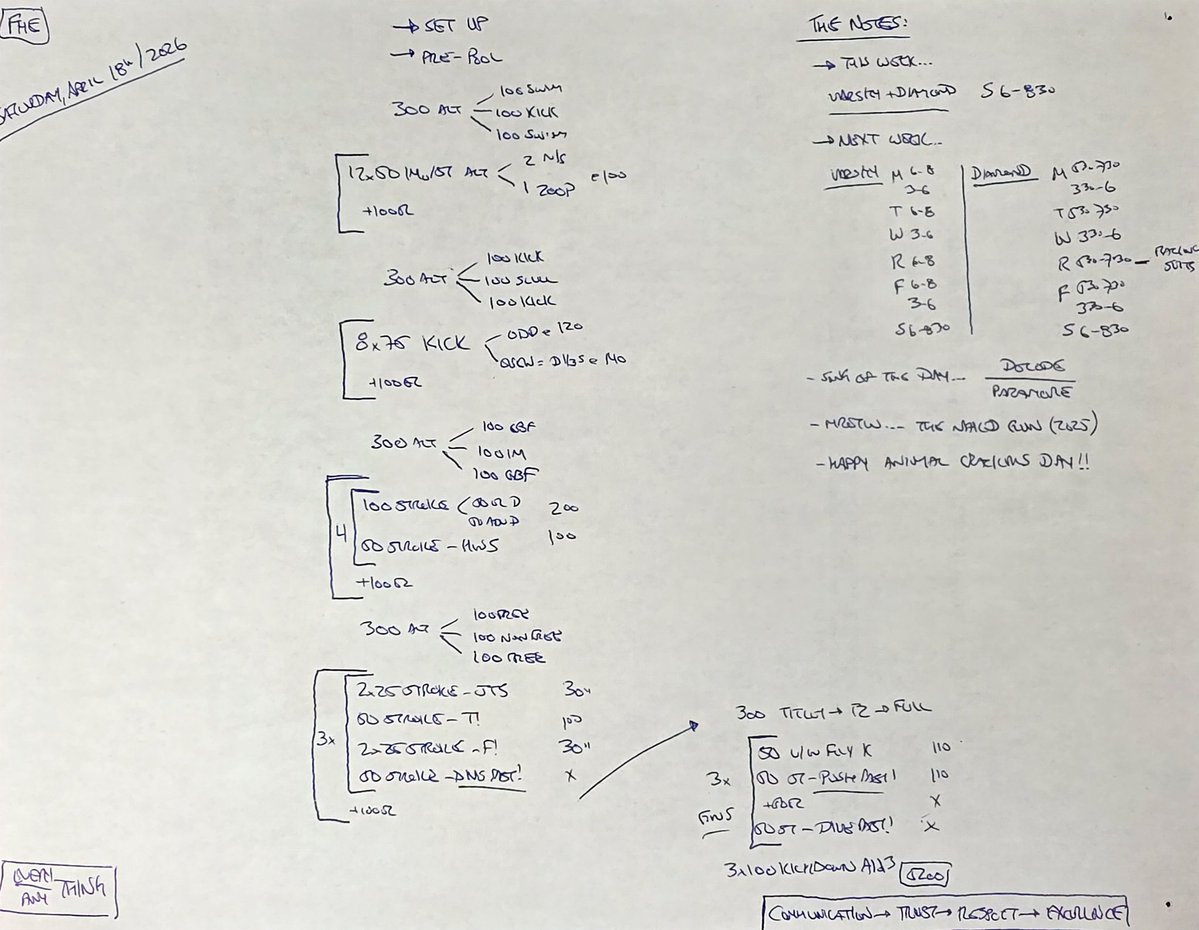 FHE
SATURDAY, APRIL 18th/2026
→ SET UP
→ PRE-POOL
300 ALT
100 SWIM
100 KICK
100 SWIM
12x50 IMO/ST ALT
2 N/S
1 200P
@100
+100Ω
300 ALT
100 KICK
100 SCULL
100 KICK
8x75 KICK
ODD @ 120
= D1/35 @ 140
+100Ω
300 ALT
100 GBF
100 IM
100 GBF
4
100 STROKE
50 D
50 D
200
50 STROKE - HWS
100
+100Ω
300 ALT
100 FREE
100 NON FREE
100 FREE
3x
2x25 STROKE - JTS 30"
50 STROKE - T! 100
2x25 STROKE - F! 30"
50 STROKE - DIVE FAST! X
+100Ω
THE NOTES:
→ THIS WEEK...
VARSITY + DIAMOND S 6-830
→ NEXT WEEK...
VARSITY
M 6-8
3-6
T 6-8
W 3-6
R 6-8
F 6-8
3-6
S 6-830
DIAMOND
M 530-730
330-6
T 530-730
W 330-6
R 530-730 - RACING SUITS
F 530-730
330-6
S 6-830
- SONG OF THE DAY... DECODE
PARAMORE
- MROTW... THE NAKED GUN (2025)
- HAPPY ANIMAL CRACKERS DAY!!
300 → → FULL
3x
FINS
50 U/W FLY K 110
50 ST - PUSH FAST! 110
+50Ω X
50 ST - DIVE FAST! X
3x100 KICK DOWN A1d3
5200
EVERY
ANY THING
COMMUNICATION → TRUST → RESPECT → EXCELLENCE